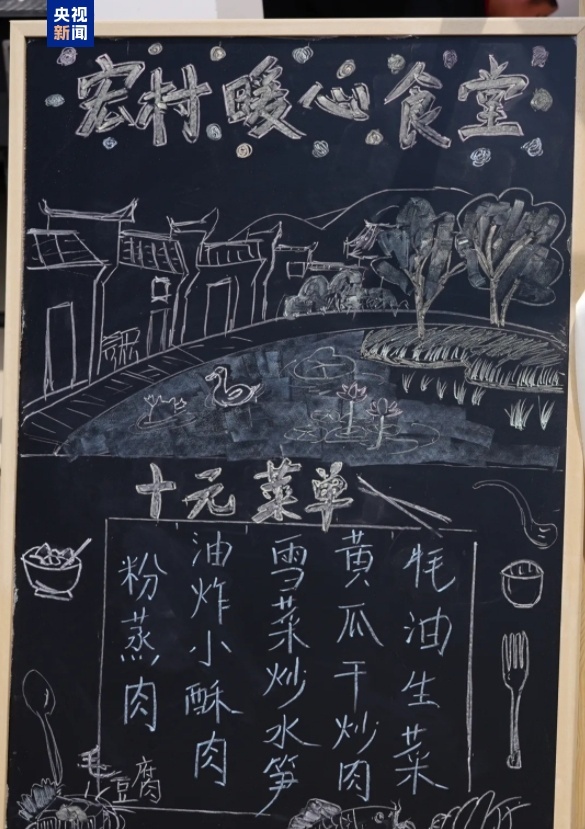 央视
新闻
宏村暖心食堂
十元菜单
蚝油生菜
黄瓜干炒肉
雪菜炒水笋
油炸小酥肉
粉蒸肉
毛豆腐